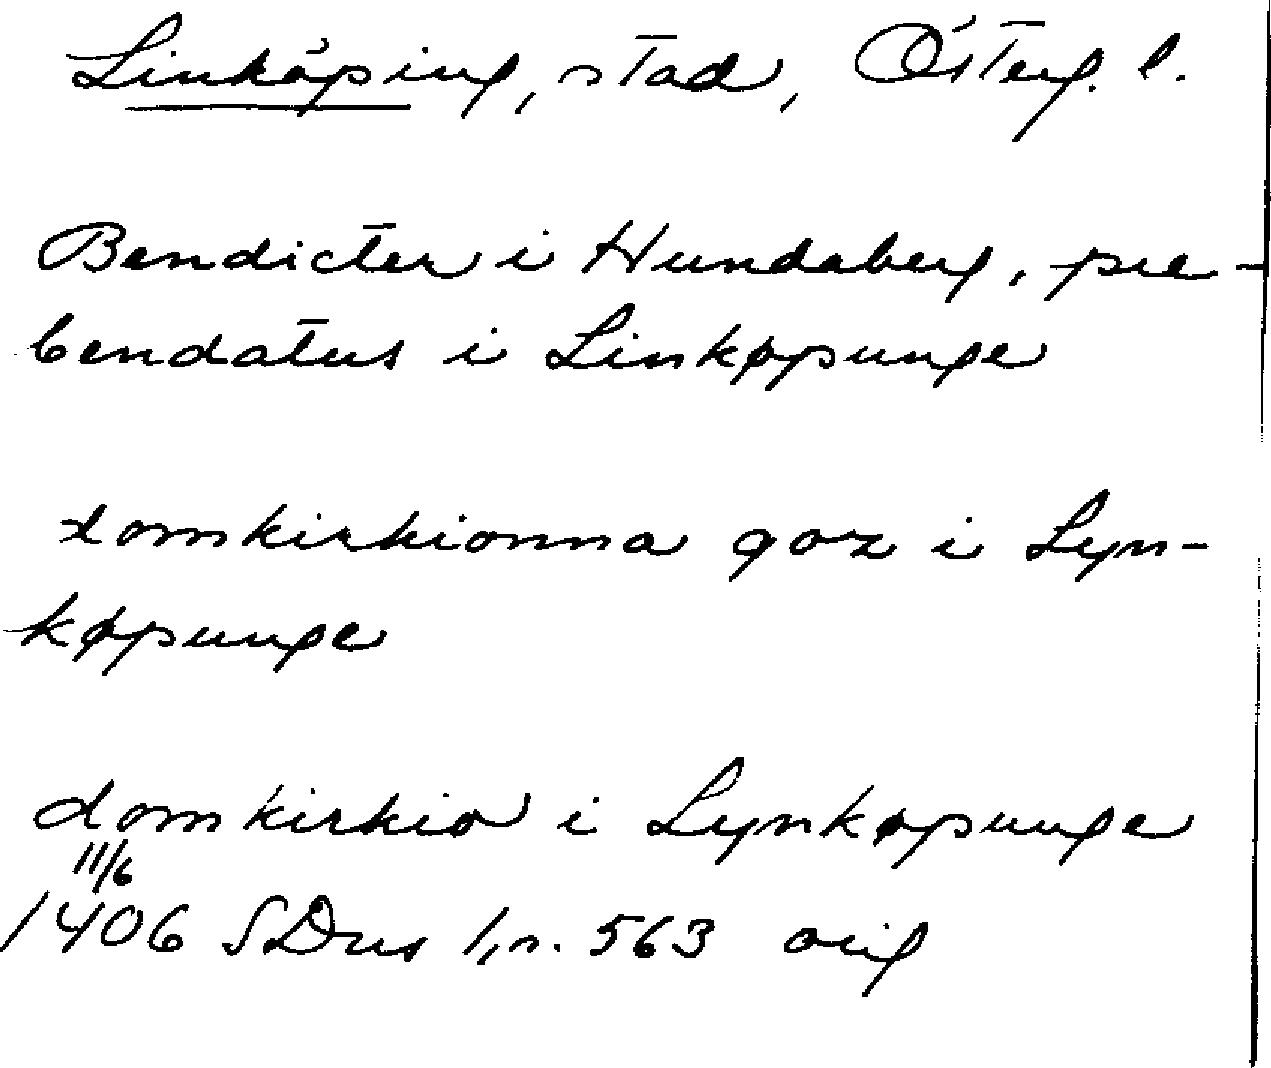 Linköping, stad, Österg. l.
Bendicter i Hundaberg, pre-
bendatus i Linkøpunge
domkirkionna goz i Lyn-
køpunge
domkirkio i Lynkøpunge
11/6
1406 SDns 1, s. 563 orig